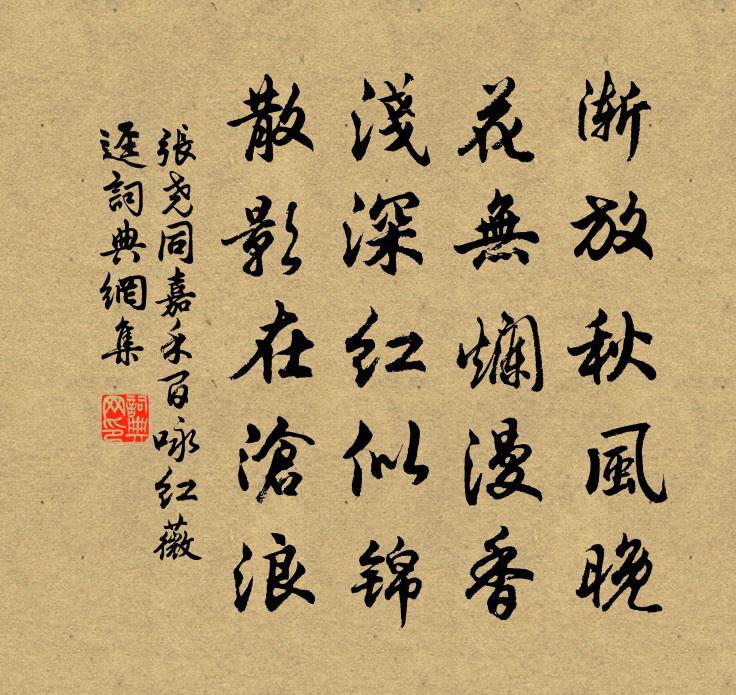 漸放秋風晩
花無爛漫香
淺深紅似錦
散影在滄浪
張尭同嘉禾百咏紅薇
逕詞典網集
詞典
网印